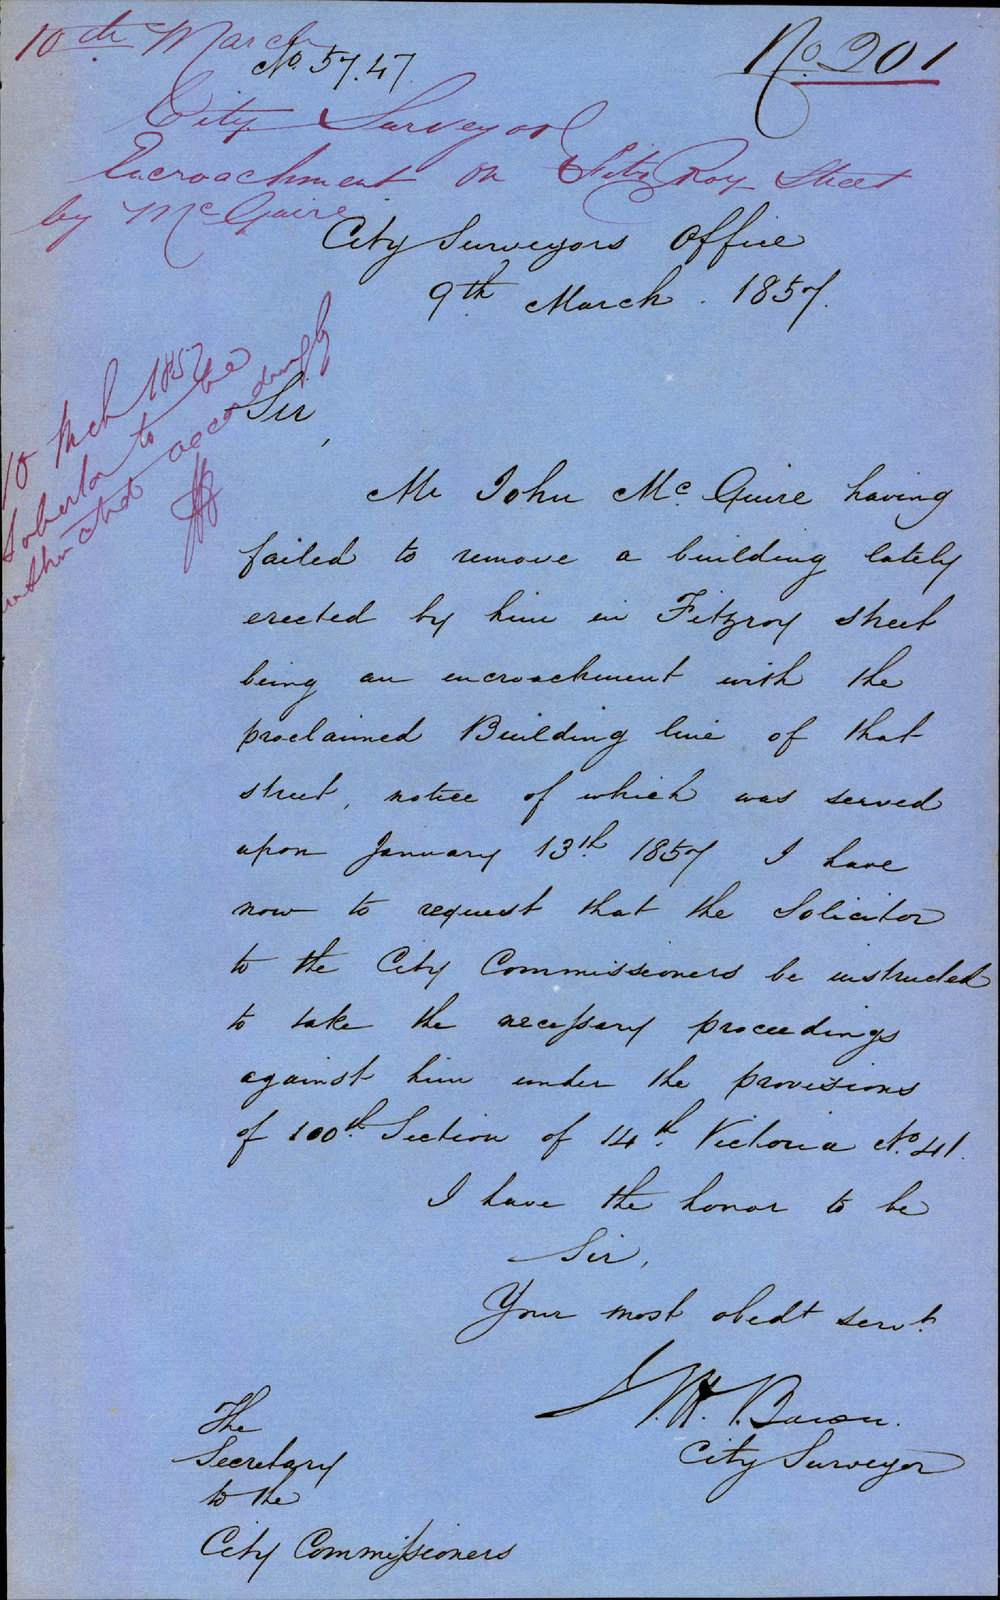 10th March
No. 57.47
No. 201
City Surveyor
Encroachment on Fitz Roy Street
by McGuire
City Surveyors Office
9th March. 1857.
10 Mch 1857
to be
instructed accordingly
Sir,
Mr John McGuire having
failed to remove a building lately
erected by him in Fitzroy street
being an encroachment with the
proclaimed Building line of that
street, notice of which was served
upon January 13th 1857 I have
now to request that the Solicitor
to the City Commissioners be instructed
to take the necessary proceedings
against him under the provisions
of 100th Section of 14th Victoria No. 41.
I have the honor to be
Sir,
Your most obedt servt.
City Surveyor
The
Secretary
to the
City Commissioners